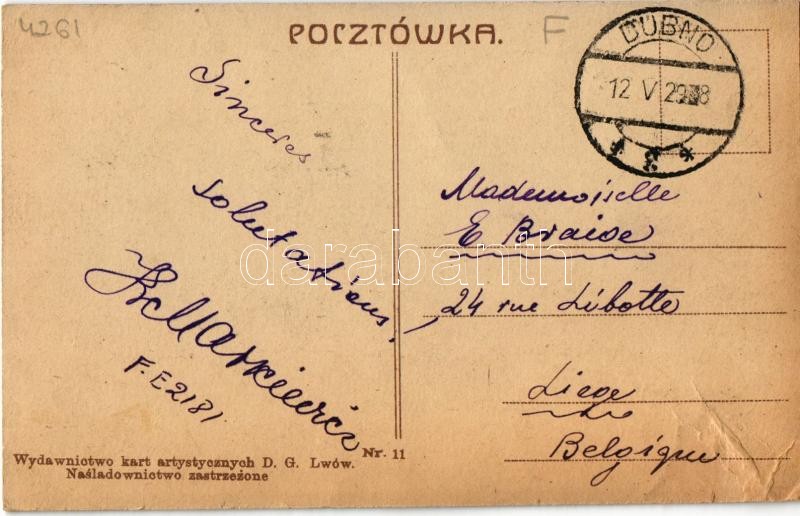 4261
POCZTÓWKA.
F
DUBNO
12 V 29 8
* 3 f
Sinceres
salutations,
F.E2181
Mademoiselle
E Braive
24 rue Libotte
Liege
Belgique
Nr. 11
Wydawnictwo kart artystycznych D. G. Lwów.
Naśladownictwo zastrzeżone
darabanth